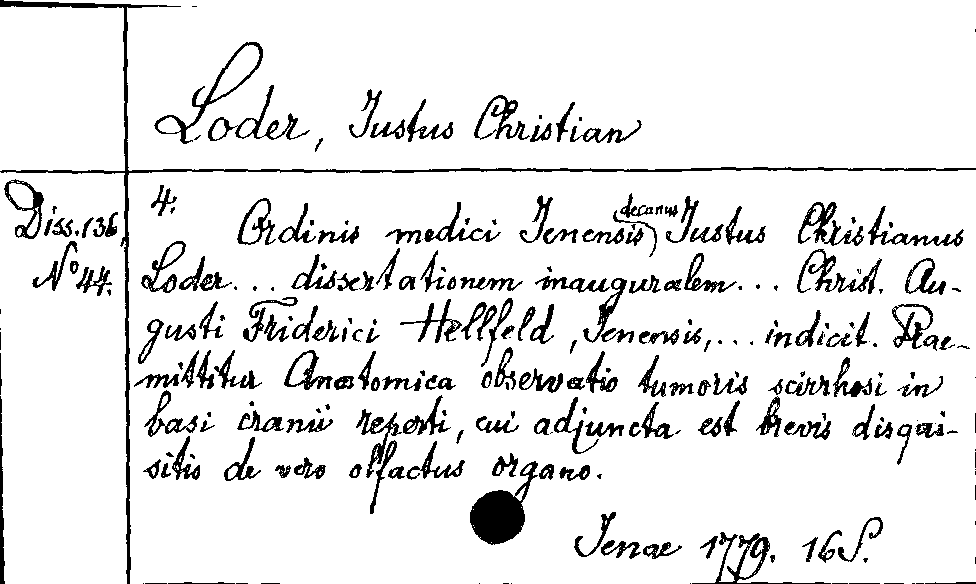 Loder, Justus Christian
Diss. 136,
No 44.
4.
Ordinis medici Jenensis decanus Justus Christianus
Loder... dissertationem inauguralem... Christ. Au-
gusti Friderici Hellfeld, Jenensis,... indicit. Prae-
mittitur Anatomica observatio tumoris scirrhosi in
basi cranii reperti, cui adjuncta est brevis disqui-
sitio de vero olfactus organo.
Jenae 1779. 16 S.